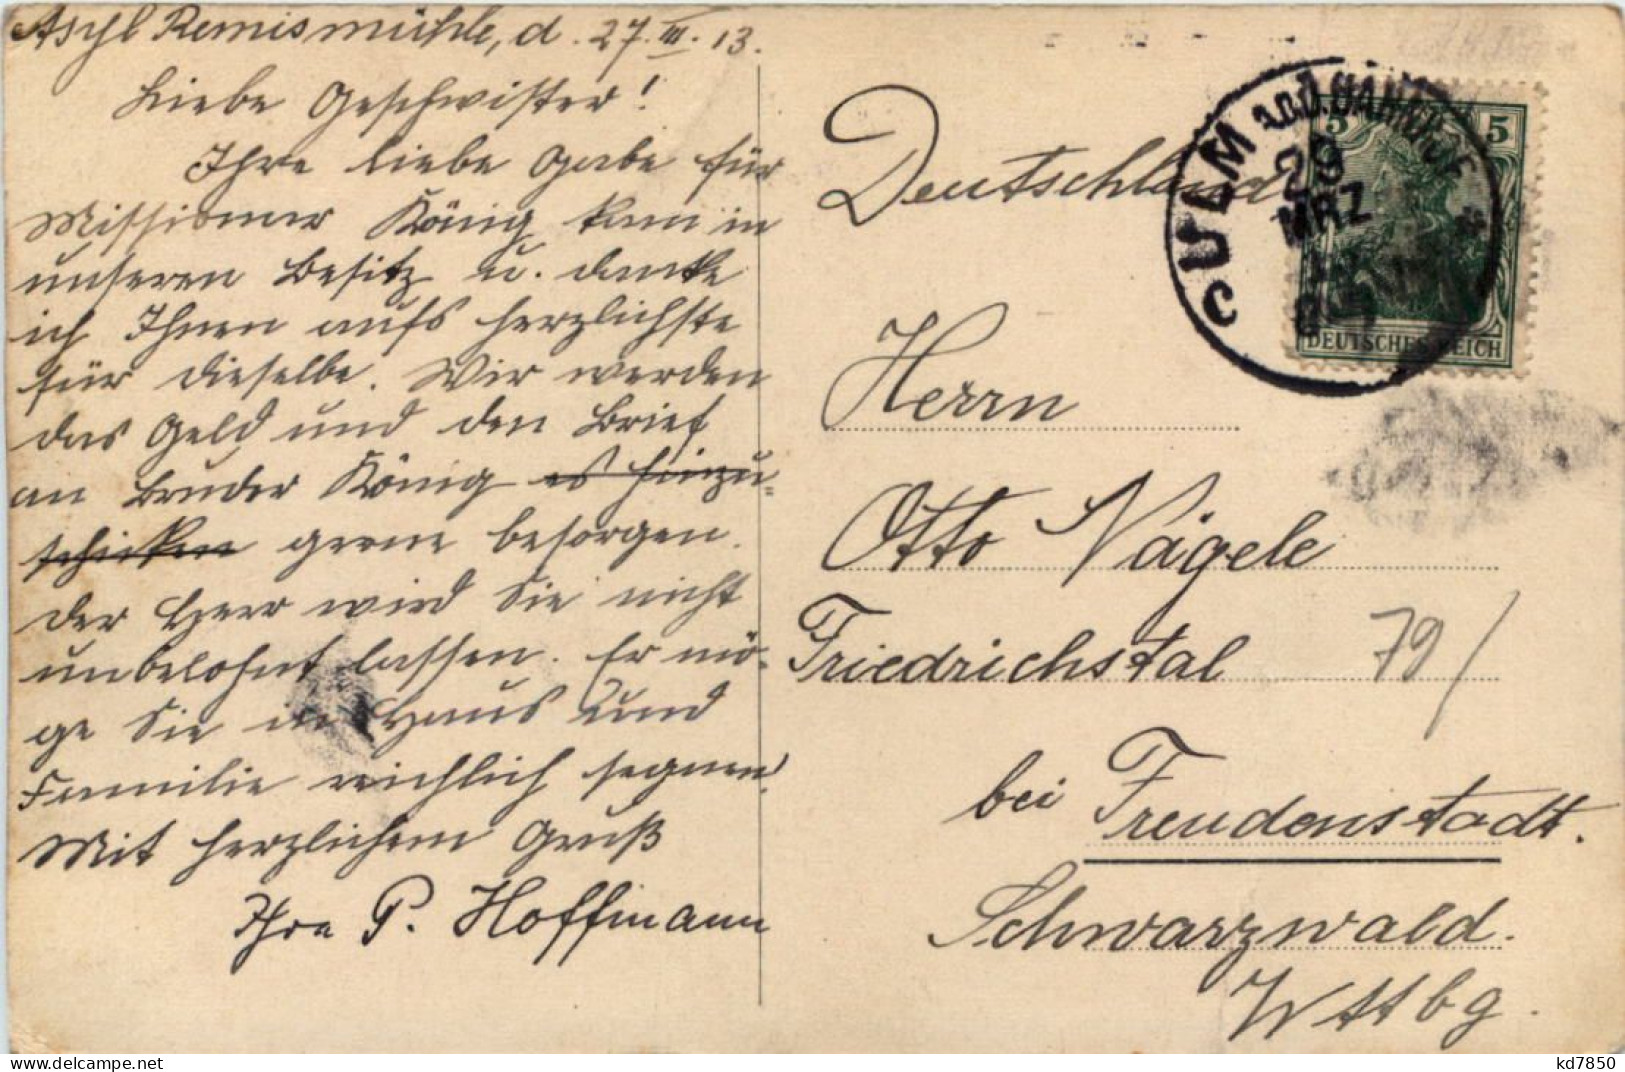 Asyl Remismühle, d. 27. III. 13.
Liebe Geschwister!
Ihre liebe Gabe für
Missionar König kam in
unseren Besitz u. danke
ich Ihnen aufs herzlichste
für dieselbe. Wir werden
das Geld und den Brief
an Bruder König es hinzu-
schicken gerne besorgen.
Der Herr wird Sie nicht
unbelohnt lassen. Er mö-
ge Sie im Haus und
Familie reichlich segnen!
Mit herzlichem Gruß
Ihre P. Hoffmann
Deutschland
Herrn
Otto Nägele
Friedrichstal
79/
bei Freudenstadt.
Schwarzwald.
Wttbg.
CULM a.D.D. BAHNHOF
29
MRZ
5 5
DEUTSCHES REICH
https://www.delcampe.net
kd7850